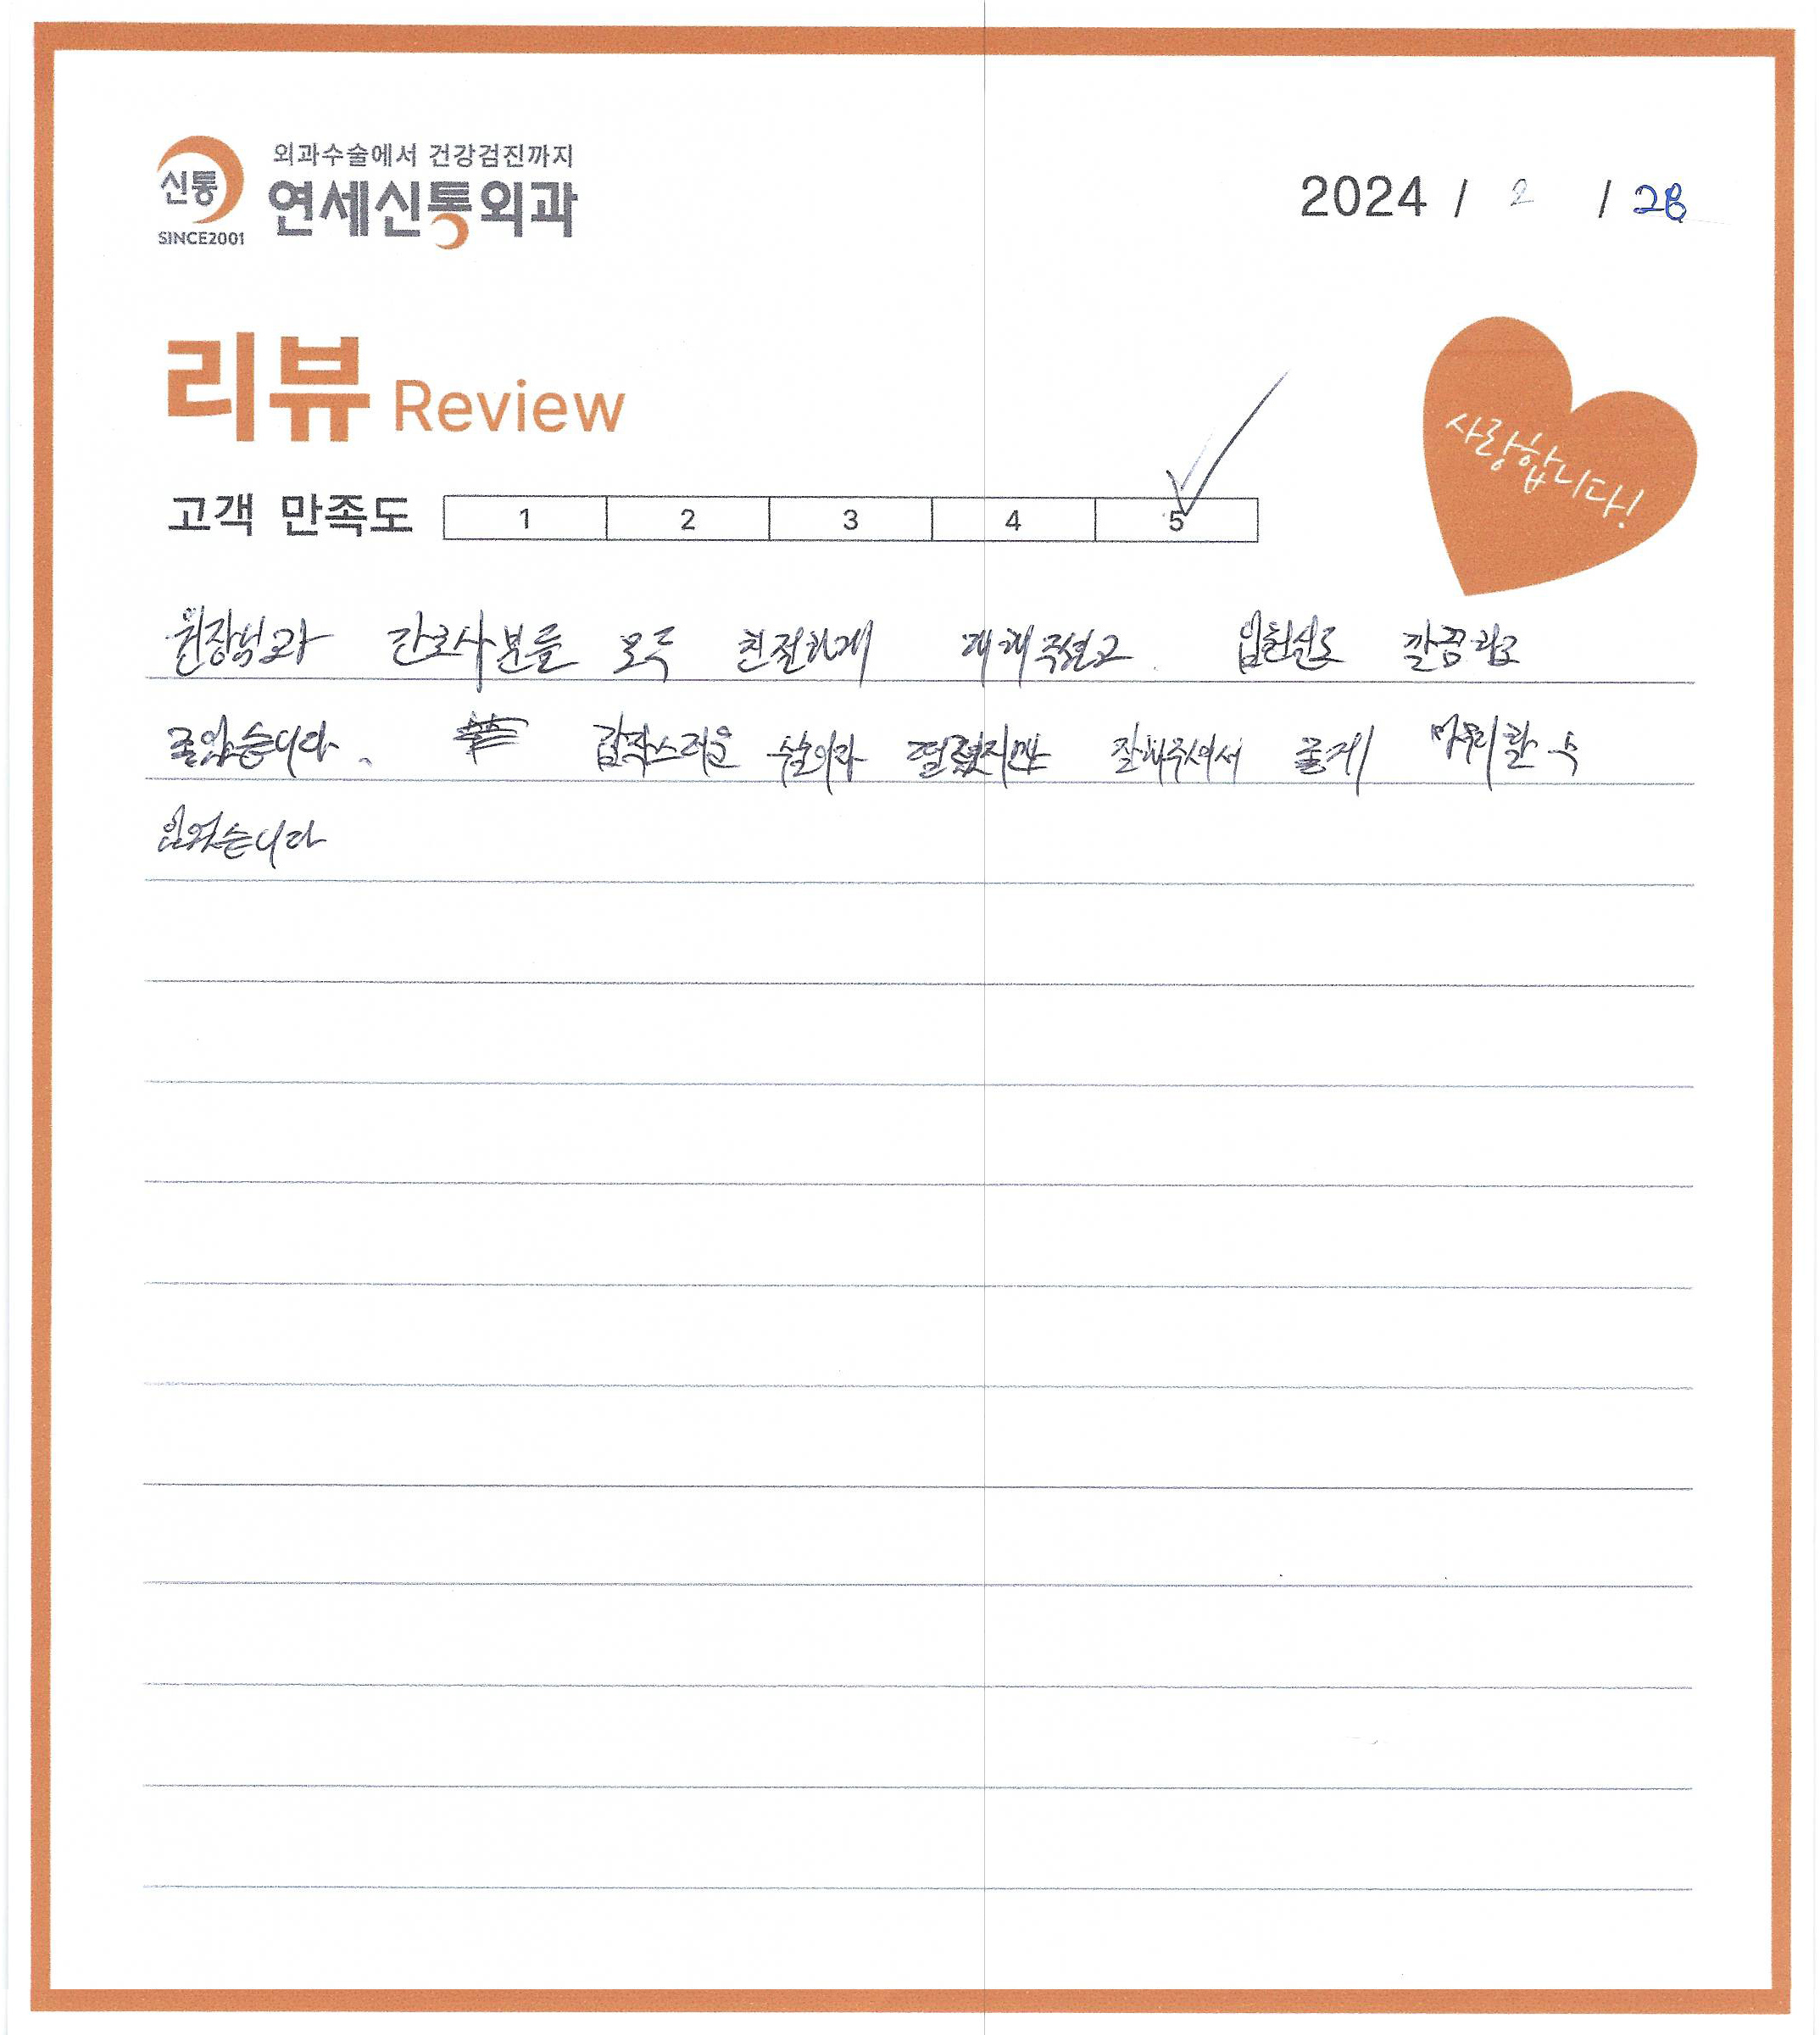 외과수술에서 건강검진까지
신통
연세신통외과
SINCE2001
2024 / 2 / 28
리뷰 Review
사랑합니다!
고객 만족도 1 2 3 4 5
원장님과 간호사분들 모두 친절하게 대해주셨고. 입원실도 깔끔하고
좋았습니다. 갑작스러운 수술이라 떨렸지만 잘해주셔서 좋게 마무리할 수
있었습니다